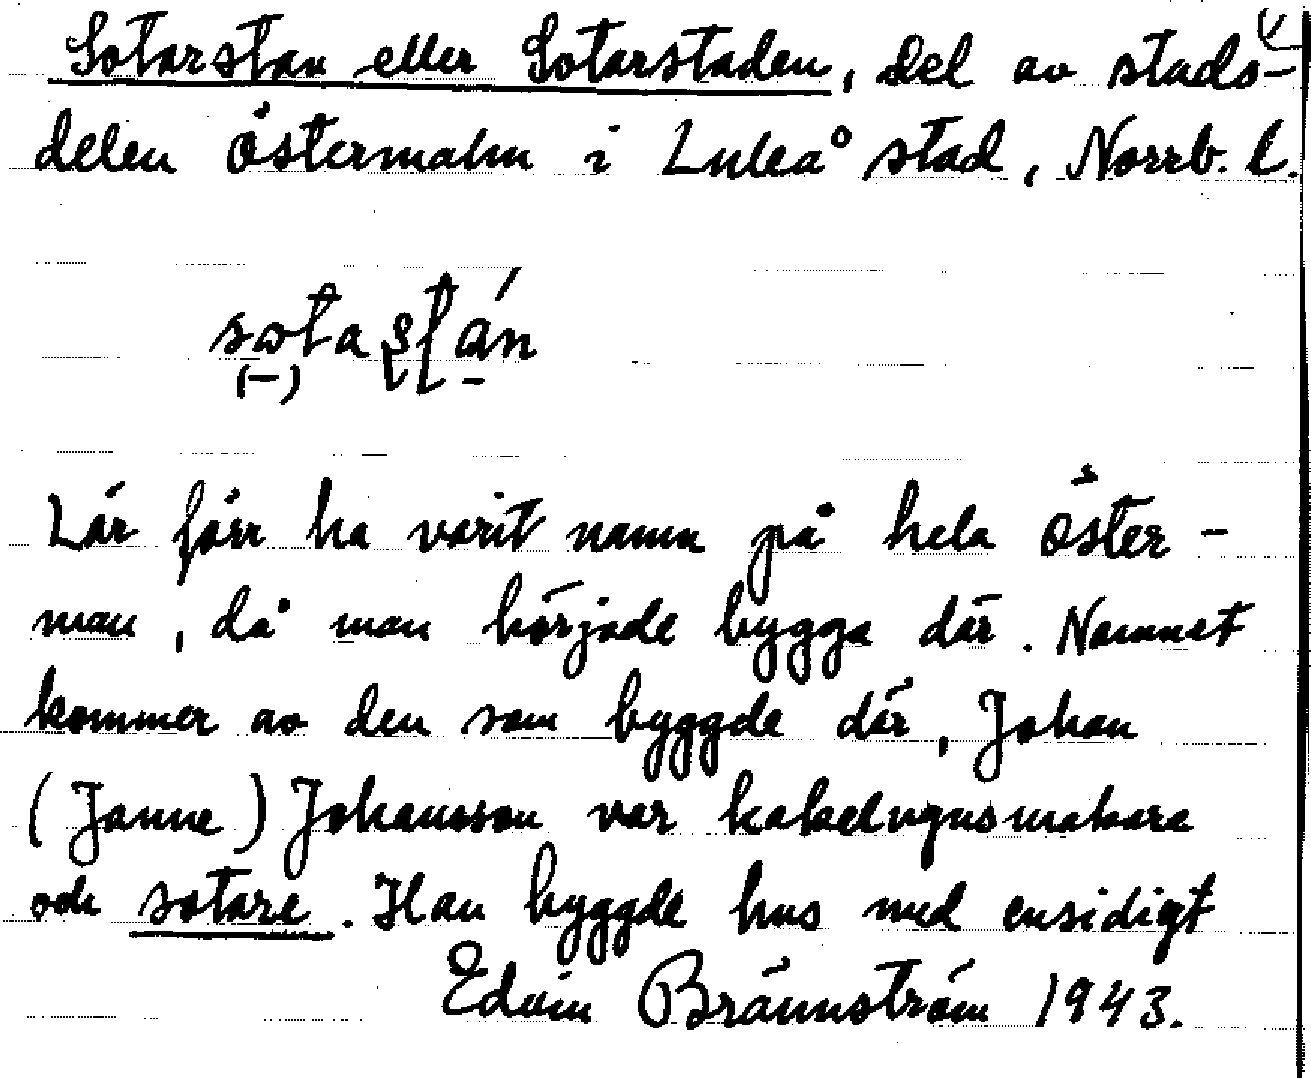 Sotarstan eller Sotarstaden, del av stads-
delen Östermalm i Luleå stad, Norrb. l.
sotastán
Lär förr ha varit namn på hela Öster-
man, då man började bygga där. Namnet
kommer av den som byggde där, Johan
(Janne) Johansson var kakelugnsmakare
och sotare. Han byggde hus med ensidigt
Edvin Brännström 1943.